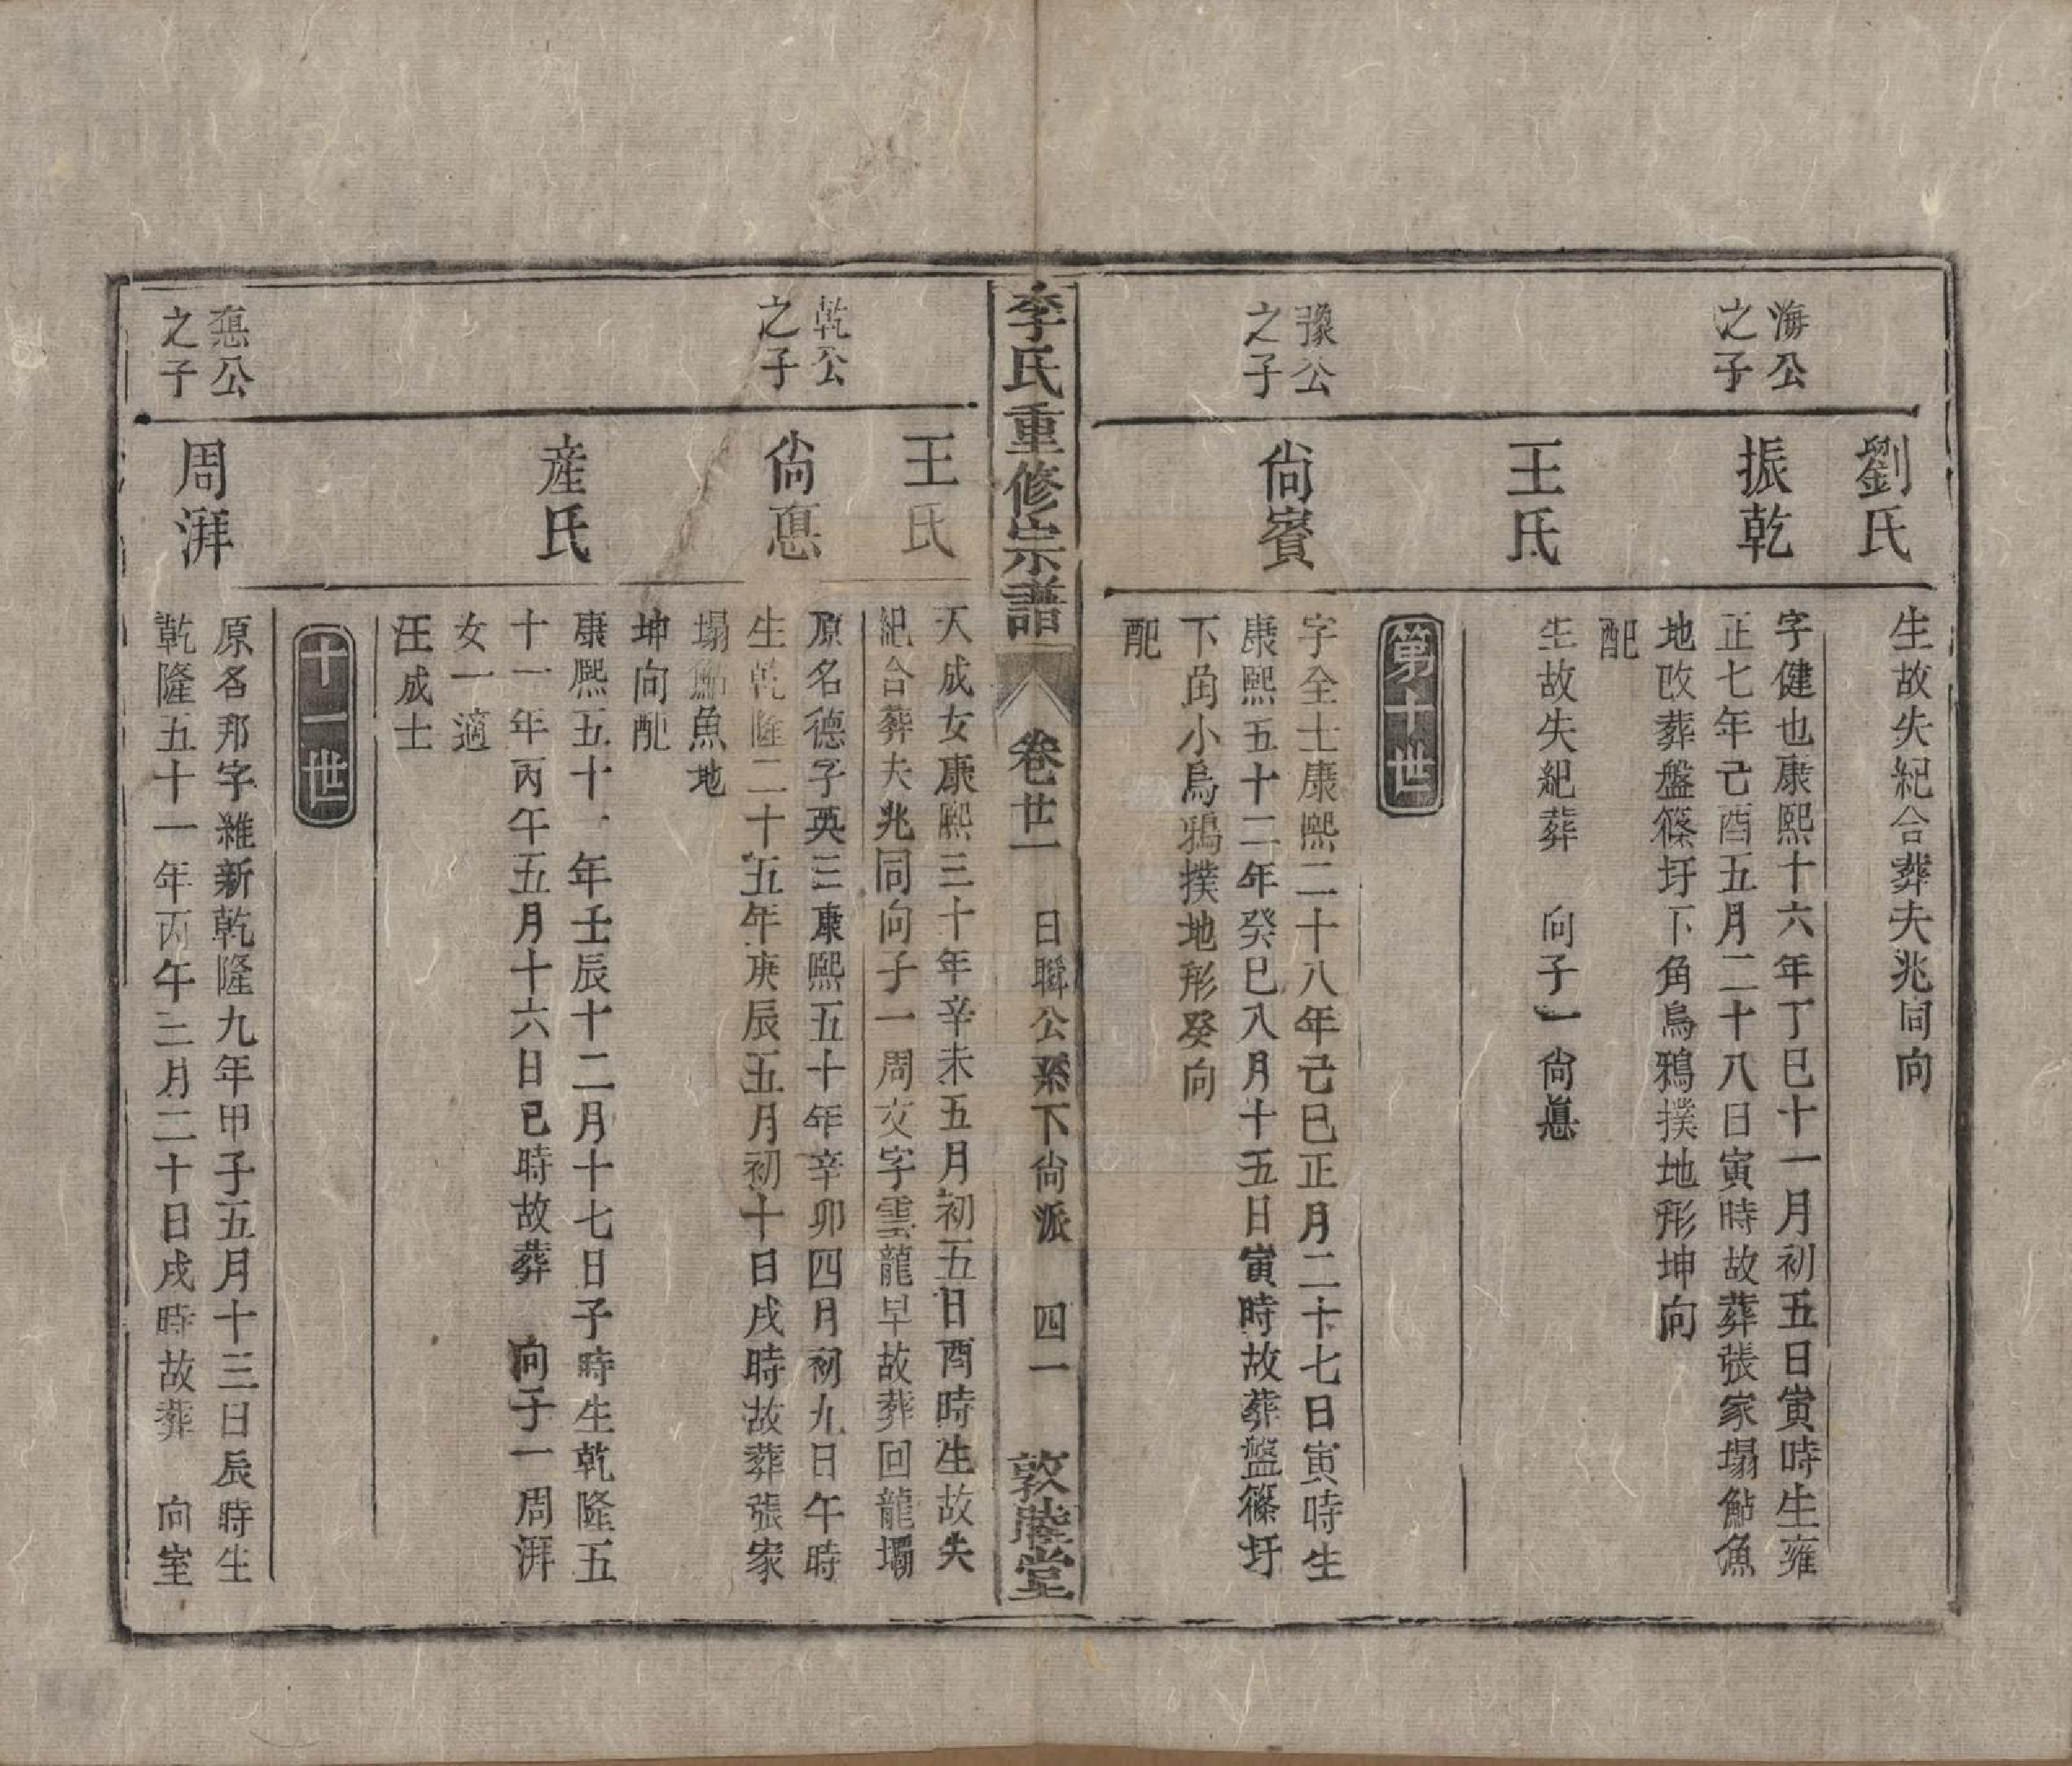 劉氏
生故失紀合葬夫兆同向
海公之子
振乾
字健也康熙十六年丁巳十一月初五日寅時生雍
正七年己酉五月二十八日寅時故葬張家塌鮎魚
地改葬盤篠圩下角烏鴉撲地形坤向
配
王氏
生故失紀葬　向子一尙惪
第十世
豫公之子
尙賓
字全士康熙二十八年己巳正月二十七日寅時生
康熙五十二年癸巳八月十五日寅時故葬盤篠圩
下角小烏鴉撲地形癸向
配
李氏重修宗譜
卷廿一　日聯公系下尙派　四一
敦睦堂
王氏
天成女康熙三十年辛未五月初五日酉時生故失
紀合葬夫兆同向子一周文字雲龍早故葬回龍壩
乾公之子
尙惪
原名德子英三康熙五十年辛卯四月初九日午時
生乾隆二十五年庚辰五月初十日戌時故葬張家
塌鮎魚地
坤向配
産氏
康熙五十一年壬辰十二月十七日子時生乾隆五
十一年丙午五月十六日巳時故葬　向子一周湃
女一適
汪成士
十一世
惪公之子
周湃
原名邦字維新乾隆九年甲子五月十三日辰時生
乾隆五十一年丙午三月二十日戌時故葬　向室